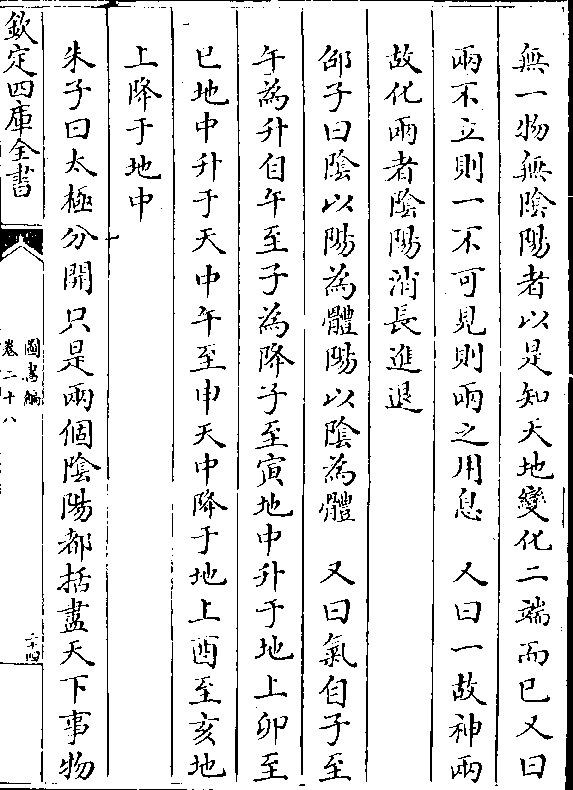 無一物無陰陽者以是知天地變化二端而已又曰
兩不立則一不可見則兩之用息　又曰一故神兩
故化兩者陰陽消長進退
邵子曰陰以陽為體陽以陰為體　又曰氣自子至
午為升自午至子為降子至寅地中升于地上卯至
巳地中升于天中午至申天中降于地上酉至亥地
上降于地中
朱子曰太極分開只是兩個陰陽都括盡天下事物
欽定四庫全書
圖書編
卷二十八
二十四